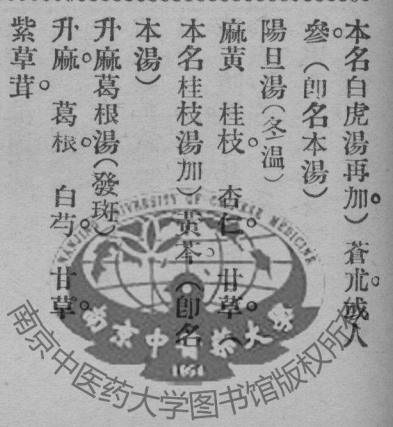 本名白虎湯再加）蒼朮。或人
參。（卽名本湯）
陽旦湯（冬溫）
麻黃　桂枝。杏仁。甘草。（
本名桂枝湯加）黃芩。（卽名
本湯）
升麻葛根湯（發斑）
升麻。葛根。白芍。甘草。
紫草茸。
NANJING UNIVERSITY OF CHINESE MEDICINE
南京中醫藥大學
1954
南京中医药大学图书馆版权所有